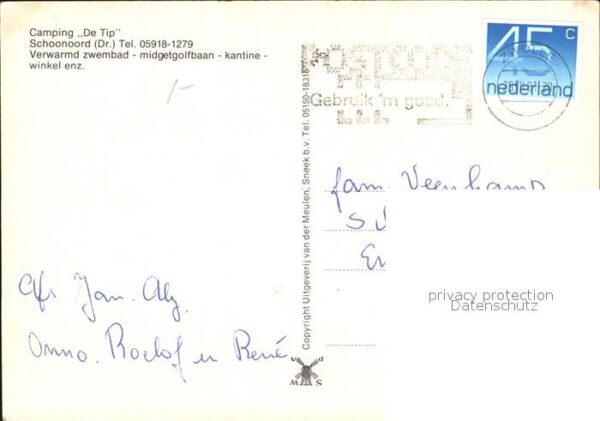 Camping „De Tip"
Schoonoord (Dr.) Tel. 05918-1279
Verwarmd zwembad - midgetgolfbaan - kantine -
winkel enz.
POSTCODE
Gebruik 'm goed.
ZWOLLE
45 c
nederland
Copyright Uitgeverij van der Meulen, Sneek b.v. Tel. 05150-18318
fam. Veenkamp
privacy protection
Datenschutz
Afz Jan. Alz.
Onno. Roelof en René
v d
M S